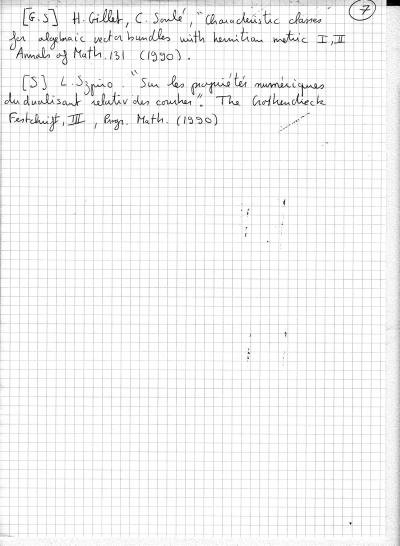 7
[G.S] H. Gillet, C. Soulé, "Characteristic classes
for algebraic vector bundles with hermitian metric I, II
Annals of Math. 131 (1990).
[S] L. Szpiro. "Sur les propriétés numériques
du dualisant relatif des courbes". The Grothendieck
Festchrift, III, Progr. Math. (1990)